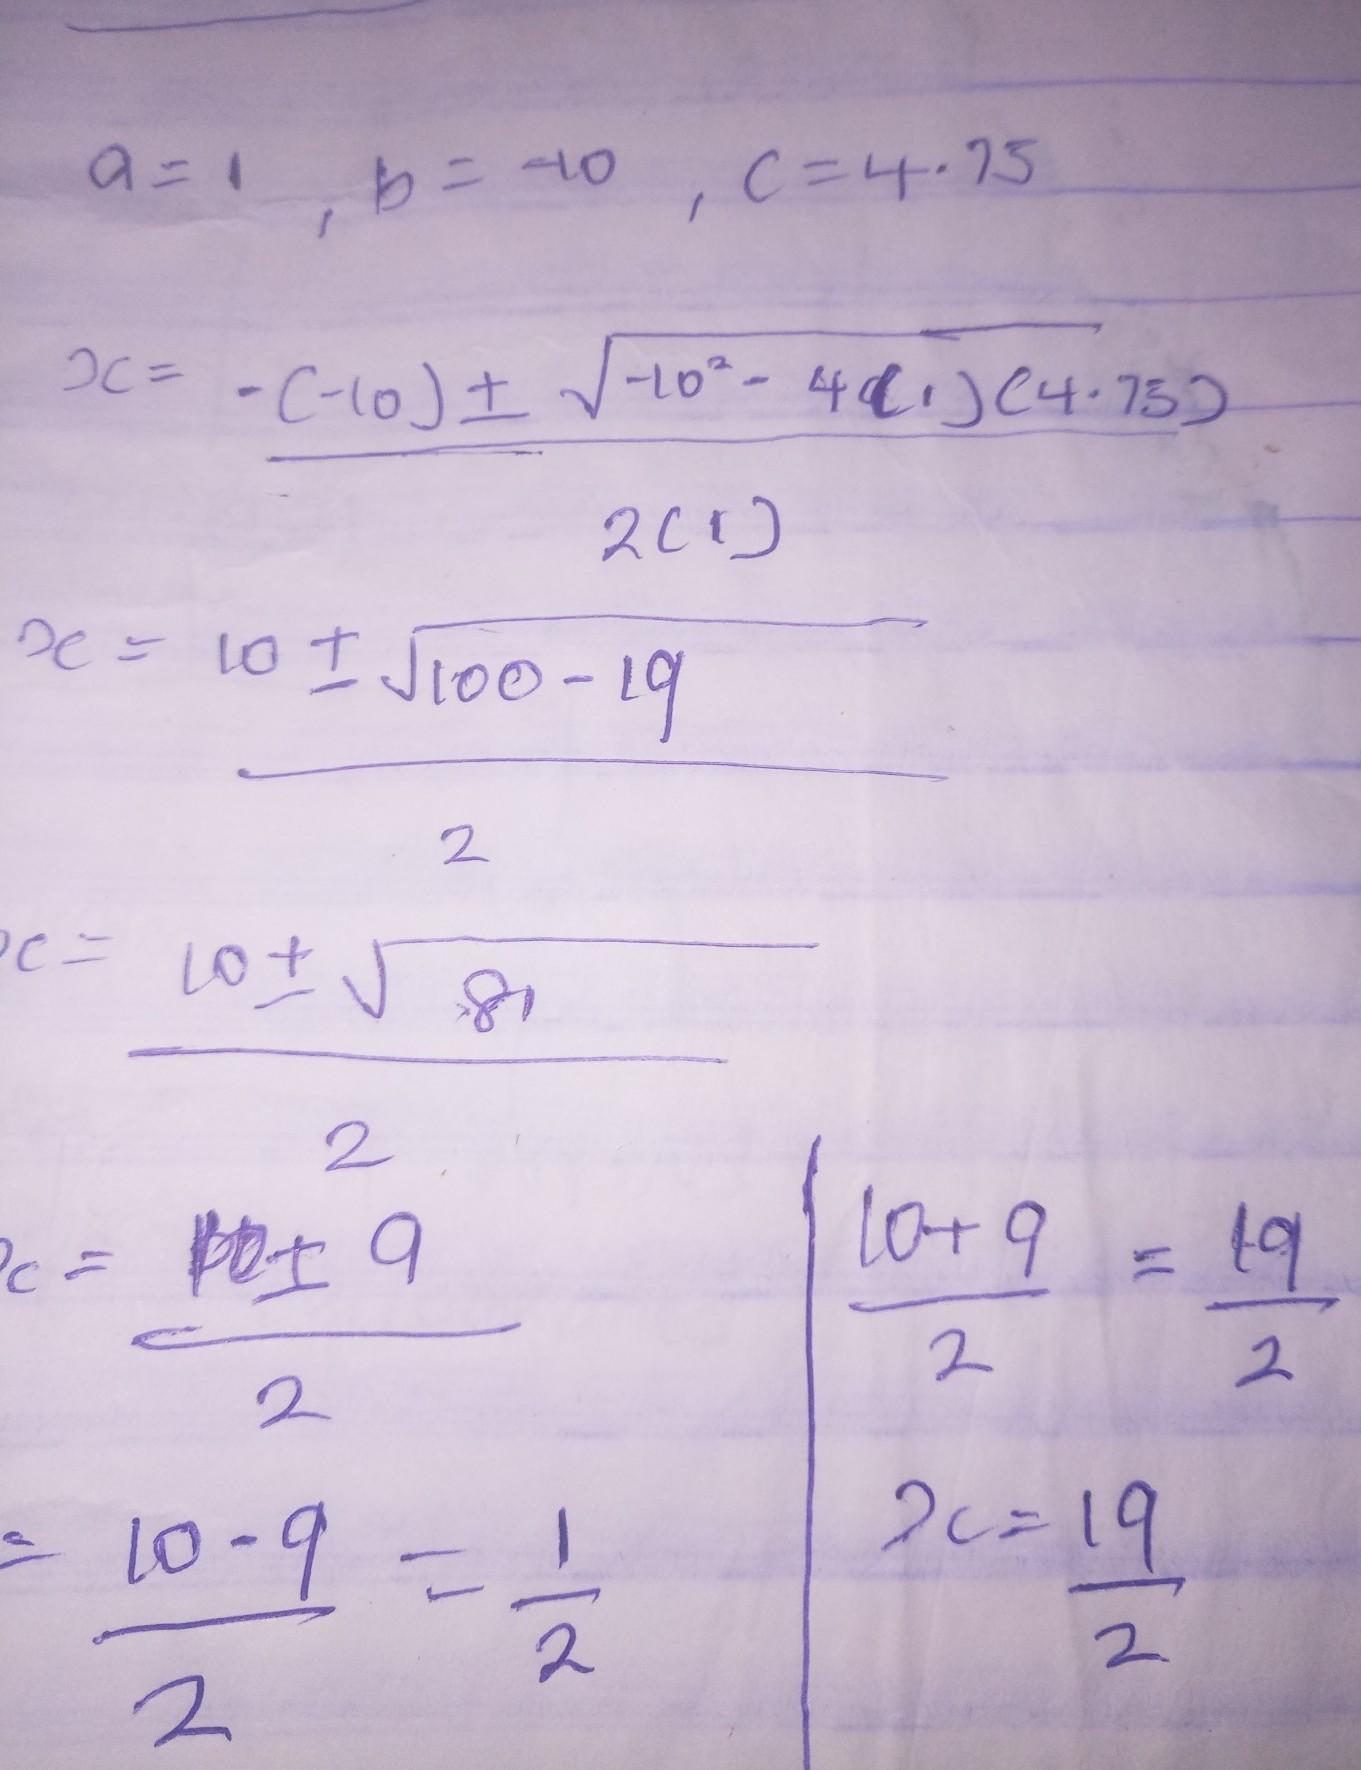 a = 1 , b = -10 , c = 4.75
x = -(-10) ± √-10² - 4(1)(4.75)
2(1)
x = 10 ± √100 - 19
2
x = 10 ± √81
2
x = 10 ± 9
2
10 + 9 = 19
2 2
= 10 - 9 = 1
2 2
x = 19
2